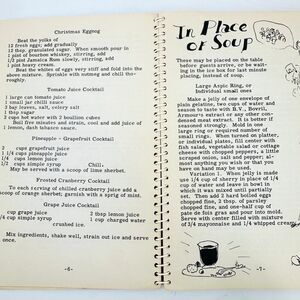 Christmas Eggnog
Beat the yolks of
12 fresh eggs; add gradually
12 tbsp. granulated sugar. When smooth pour in
1 pint of bourbon whiskey, stirring, add
1/2 pint Jamaica Rum slowly, stirring, add
1 pt. cream
Beat the whites of eggs very stiff and fold into the
above mixture. Sprinkle with nutmeg and chill tho-
roughly.
Tomato Juice Cocktail
1 large can tomato juice
1 small jar chilli sauce
2 bay leaves, salt, celery salt
2 cloves
2 cups hot water with 2 bouillon cubes
Boil five minutes and strain, cool and add juice of
1 lemon, dash tabasco sauce.
Pineapple - Grapefruit Cocktail
2 cups grapefruit juice
2 cups pineapple juice
1/4 cups lemon juice
1/2 cups simple syrup Chill.
May be served with a scoop of lime sherbet.
Frosted Cranberry Cocktail
To each serving of chilled cranberry juice add a
scoop of orange sherbet; garnish with a sprig of mint.
Grape Juice Cocktail
1 cup grape juice 2 tbsp lemon juice
1/4 cup simple syrup 1 cup charged water
crushed ice.
Mix ingredients, shake well, strain out ice and serve at
once.
-6-
In Place
of Soup
These may be placed on the table
before guests arrive, or be wait-
ing in the ice box for last minute
placing, instead of soup.
Large Aspic Ring, or
Individual small ones
Make a jelly of one envelope of
plain gelatine, two cups of water and
season to taste with B.V., Bovril,
Armour's extract or any other con-
densed meat extract. It is better if
seasoned strongly. Mold in one
large ring or required number of
small rings. When turned on platter,
or individual plates, fill center with
fish salad, vegetable salad or cottage
cheese with chopped peppers, a little
scraped onion, salt and pepper, al-
most anything you wish or that you
have on hand may be used.
Variation 1. When jelly is made
use 1/4 cup of sherry in place of 1/4
cup of water and leave in bowl in
which it was mixed until partially
set. Then add 2 hard boiled eggs
chopped fine, 2 tbsp. of parsley
chopped fine, and one-half cup of
pate de fois gras and pour into mold.
Serve with center filled with mixture
of 3/4 mayonnaise and 1/4 whipped cream.
-7-